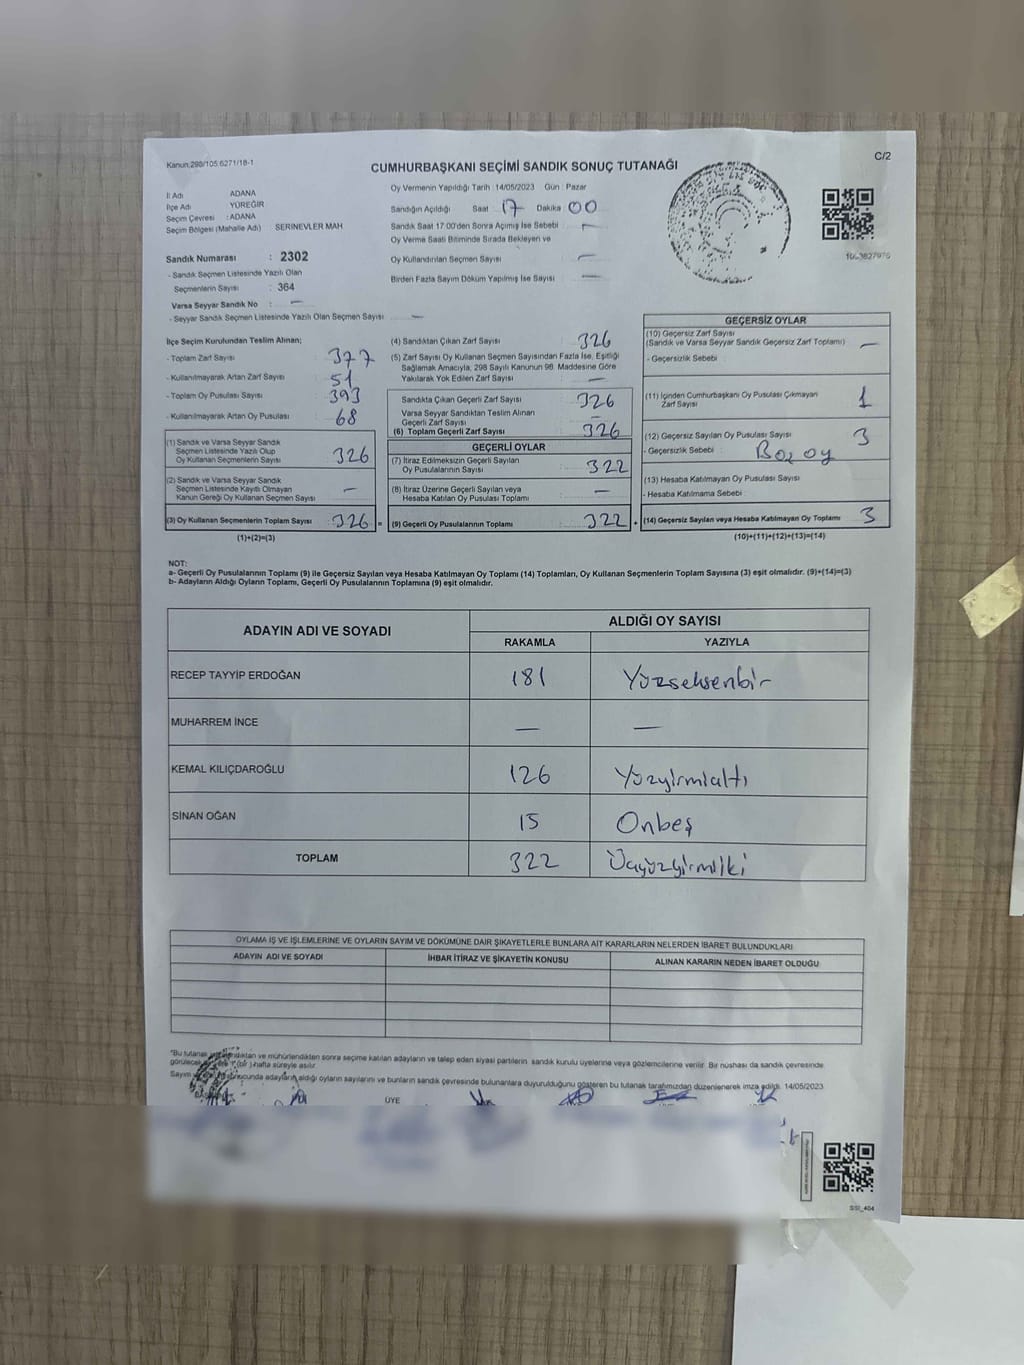 Kanun:298/105.6271/18-1
C/2
CUMHURBAŞKANI SEÇİMİ SANDIK SONUÇ TUTANAĞI
İl Adı ADANA
İlçe Adı YÜREĞİR
Seçim Çevresi : ADANA
Seçim Bölgesi (Mahalle Adı) SERINEVLER MAH
Sandık Numarası : 2302
- Sandık Seçmen Listesinde Yazılı Olan
Seçmenlerin Sayısı : 364
Varsa Seyyar Sandık No : —
- Seyyar Sandık Seçmen Listesinde Yazılı Olan Seçmen Sayısı : —
Oy Vermenin Yapıldığı Tarih : 14/05/2023 Gün : Pazar
Sandığın Açıldığı Saat 17 Dakika 00
Sandık Saat 17:00'den Sonra Açımış İse Sebebi : —
Oy Verme Saati Bitiminde Sırada Bekleyen ve
Oy Kullandırılan Seçmen Sayısı : —
Birden Fazla Sayım Döküm Yapılmış İse Sayısı : —
İlçe Seçim Kurulundan Teslim Alınan;
- Toplam Zarf Sayısı : 377
- Kullanılmayarak Artan Zarf Sayısı : 51
- Toplam Oy Pusulası Sayısı : 393
- Kullanılmayarak Artan Oy Pusulası : 68
(1) Sandık ve Varsa Seyyar Sandık
Seçmen Listesinde Yazılı Olup
Oy Kullanan Seçmenlerin Sayısı 326
(2) Sandık ve Varsa Seyyar Sandık
Seçmen Listesinde Kayıtlı Olmayan
Kanun Gereği Oy Kullanan Seçmen Sayısı —
(3) Oy Kullanan Seçmenlerin Toplam Sayısı 326 =
(1)+(2)=(3)
(4) Sandıktan Çıkan Zarf Sayısı 326
(5) Zarf Sayısı Oy Kullanan Seçmen Sayısından Fazla İse, Eşitliği
Sağlamak Amacıyla, 298 Sayılı Kanunun 98. Maddesine Göre
Yakılarak Yok Edilen Zarf Sayısı —
Sandıkta Çıkan Geçerli Zarf Sayısı 326
Varsa Seyyar Sandıktan Teslim Alınan
Geçerli Zarf Sayısı
(6) Toplam Geçerli Zarf Sayısı 326
GEÇERLİ OYLAR
(7) İtiraz Edilmeksizin Geçerli Sayılan
Oy Pusulalarının Sayısı 322
(8) İtiraz Üzerine Geçerli Sayılan veya
Hesaba Katılan Oy Pusulası Toplamı —
(9) Geçerli Oy Pusulalarının Toplamı 322
GEÇERSİZ OYLAR
(10) Geçersiz Zarf Sayısı
(Sandık ve Varsa Seyyar Sandık Geçersiz Zarf Toplamı) —
- Geçersizlik Sebebi :
(11) İçinden Cumhurbaşkanı Oy Pusulası Çıkmayan
Zarf Sayısı 1
(12) Geçersiz Sayılan Oy Pusulası Sayısı 3
- Geçersizlik Sebebi :
(13) Hesaba Katılmayan Oy Pusulası Sayısı
- Hesaba Katılmama Sebebi
(14) Geçersiz Sayılan veya Hesaba Katılmayan Oy Toplamı 3
(10)+(11)+(12)+(13)=(14)
NOT:
a- Geçerli Oy Pusulalarının Toplamı (9) ile Geçersiz Sayılan veya Hesaba Katılmayan Oy Toplamı (14) Toplamları, Oy Kullanan Seçmenlerin Toplam Sayısına (3) eşit olmalıdır. (9)+(14)=(3)
b- Adayların Aldığı Oyların Toplamı, Geçerli Oy Pusulalarının Toplamına (9) eşit olmalıdır.
ADAYIN ADI VE SOYADI ALDIĞI OY SAYISI
RAKAMLA YAZIYLA
RECEP TAYYİP ERDOĞAN 181 Yüzseksenbir
MUHARREM İNCE — —
KEMAL KILIÇDAROĞLU 126 Yüzyirmialtı
SİNAN OĞAN 15 Onbeş
TOPLAM 322 Üçyüzyirmiiki
OYLAMA İŞ VE İŞLEMLERİNE VE OYLARIN SAYIM VE DÖKÜMÜNE DAİR ŞİKAYETLERLE BUNLARA AİT KARARLARIN NELERDEN İBARET BULUNDUKLARI
ADAYIN ADI VE SOYADI İHBAR İTİRAZ VE ŞİKAYETİN KONUSU ALINAN KARARIN NEDEN İBARET OLDUĞU
"Bu tutanak ve mühürlendikten sonra seçime katılan adayların ve talep eden siyasi partilerin sandık kurulu üyelerine veya gözlemcilerine verilir. Bir nüshası da sandık çevresinde
(bir) hafta süreyle asılır.
Sayım sonucunda adayların aldığı oyların sayılarını ve bunların sandık çevresinde bulunanlara duyurulduğunu gösteren bu tutanak tarafımızdan düzenlenerek imza edildi. 14/05/2023
ÜYE
SSI_404